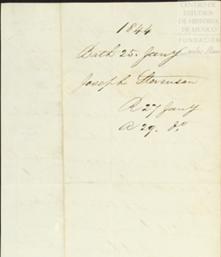 CENTRO DE
ESTUDIOS
DE HISTORIA
DE MEXICO
FUNDACIÓN
1844
Bath 25. Jany
Joseph
R 27 Jany
A 29. do